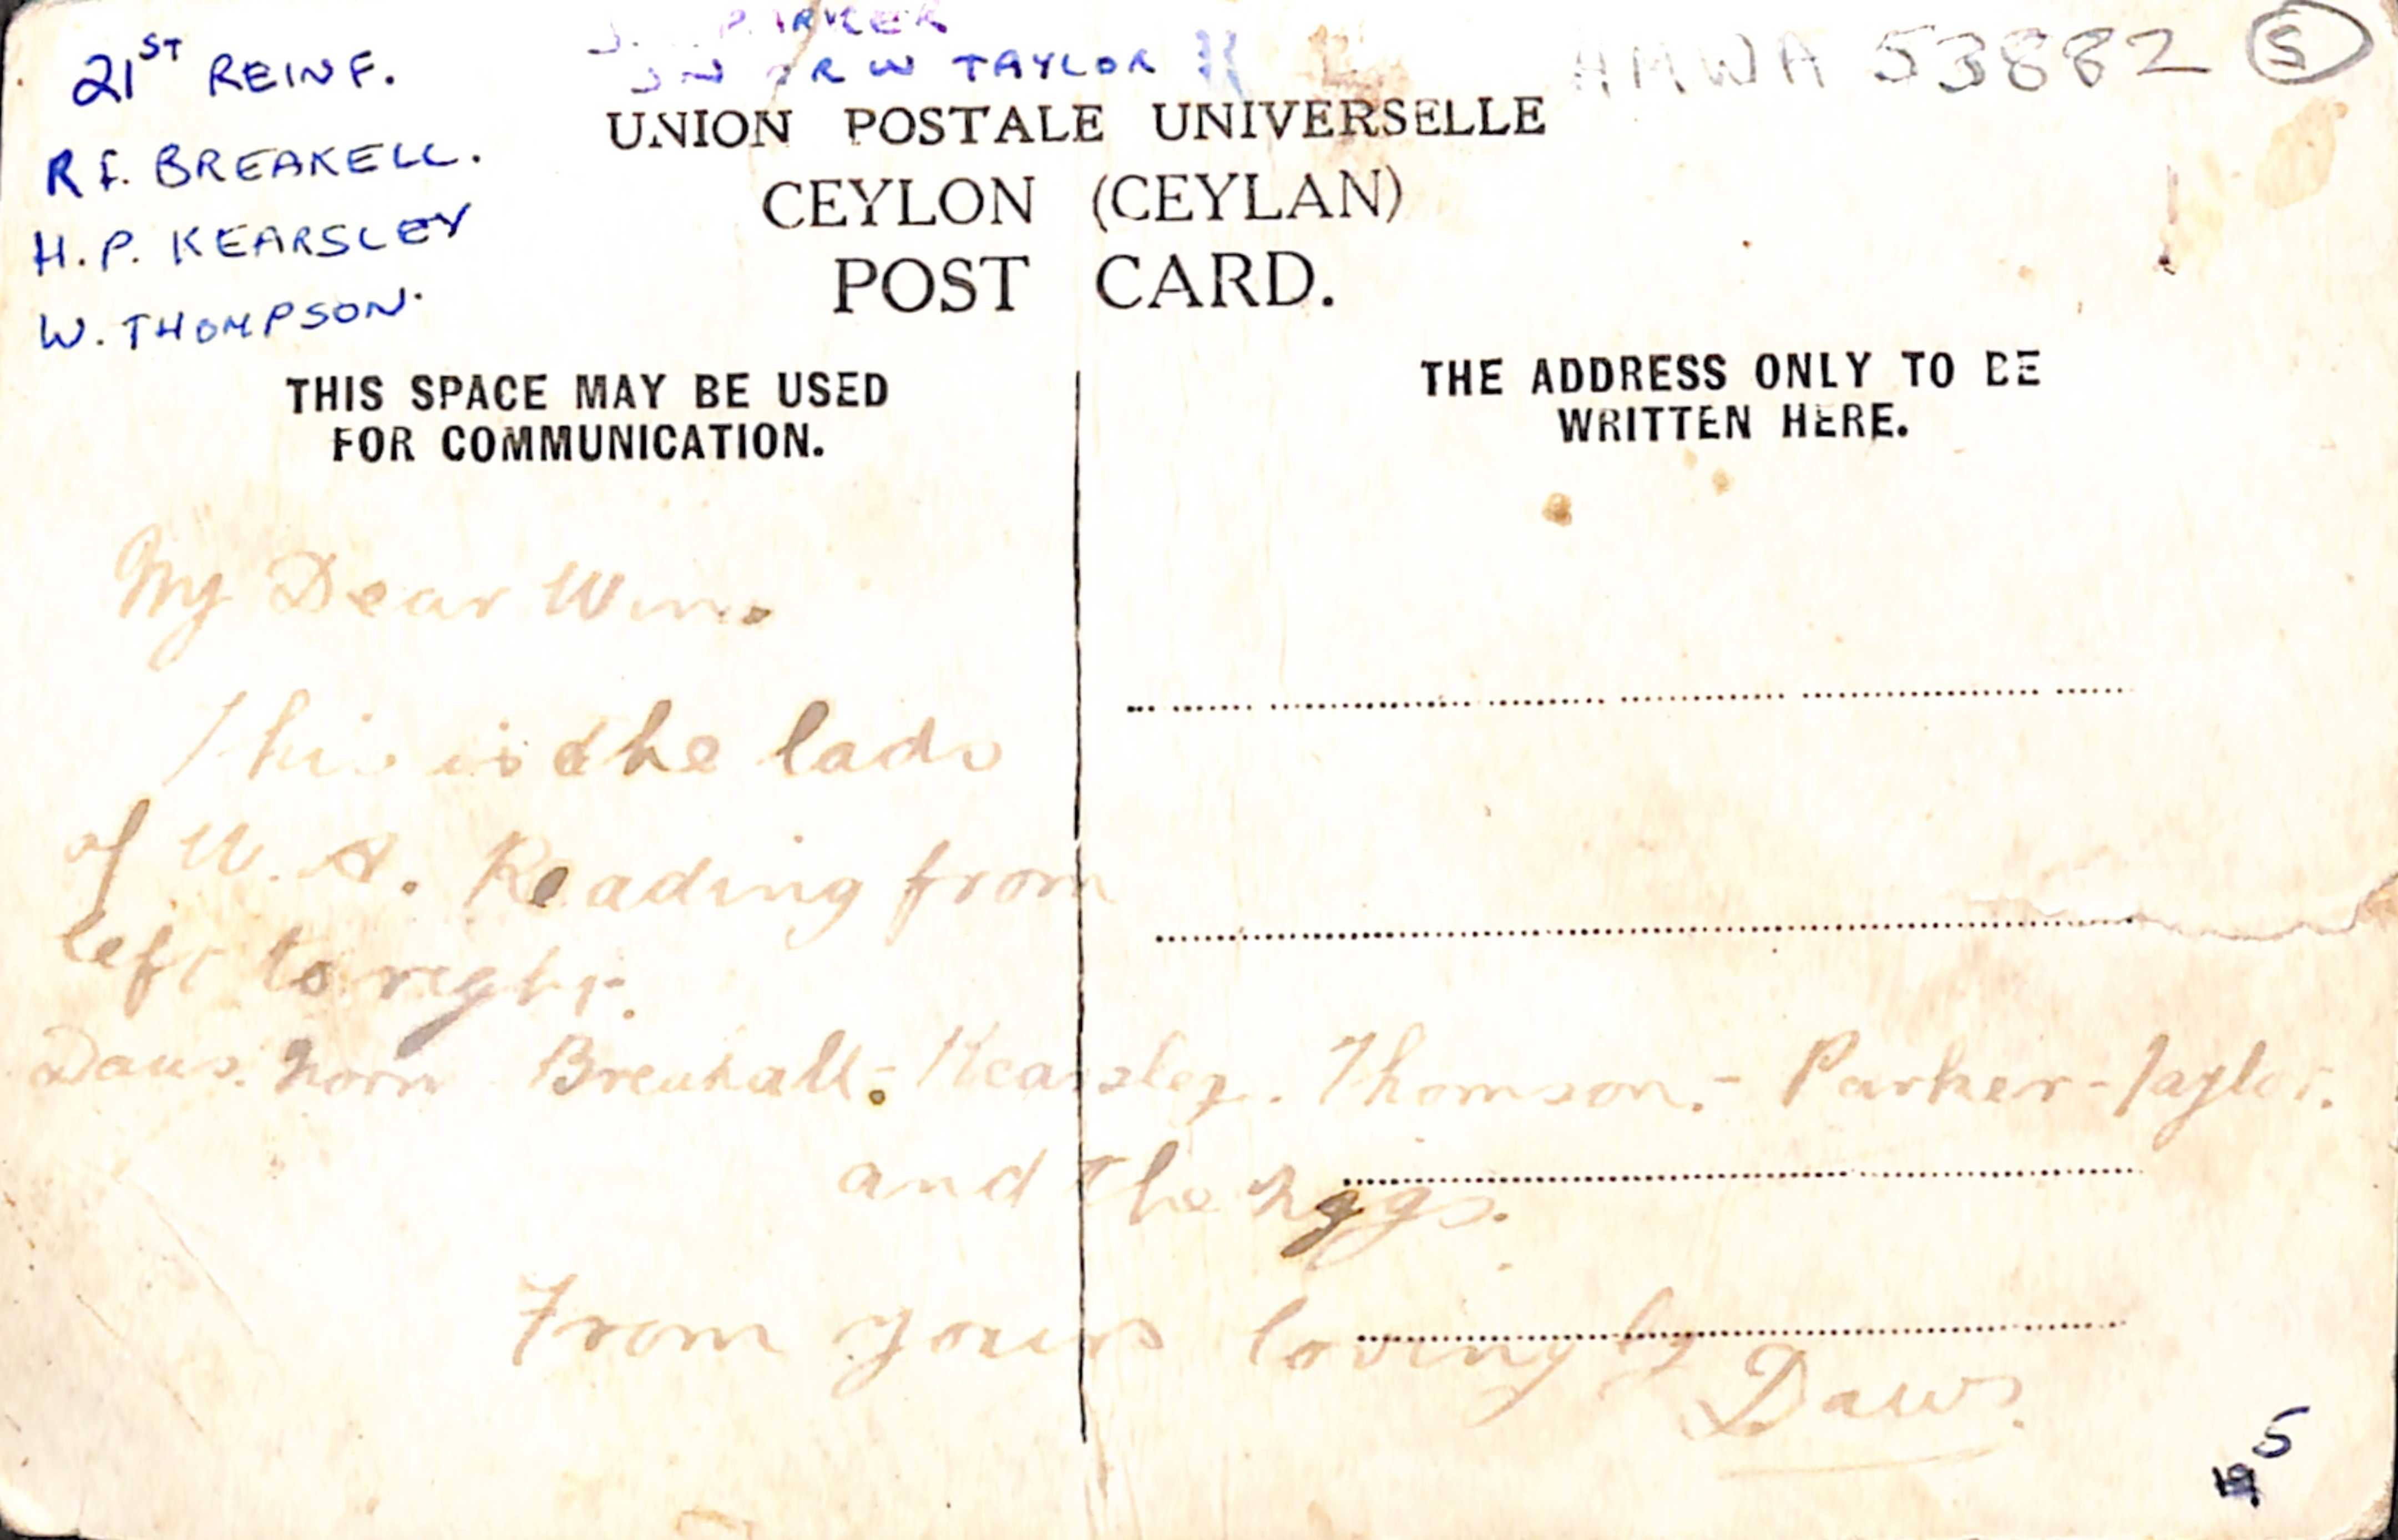 21ST REINF.
R F. BREAKELL.
H. P. KEARSLEY
W. THOMPSON.
PARKER
R W TAYLOR
AMWA 53882 S
UNION POSTALE UNIVERSELLE
CEYLON (CEYLAN)
POST CARD.
THIS SPACE MAY BE USED
FOR COMMUNICATION.
THE ADDRESS ONLY TO BE
WRITTEN HERE.
My Dear Win.
This is the lads
of W. A. Reading from
left to right.
Daws. Horn Breakall:- Kearsley. Thomson.- Parker-Taylor.
and the
From yours lovingly
Daws.
5